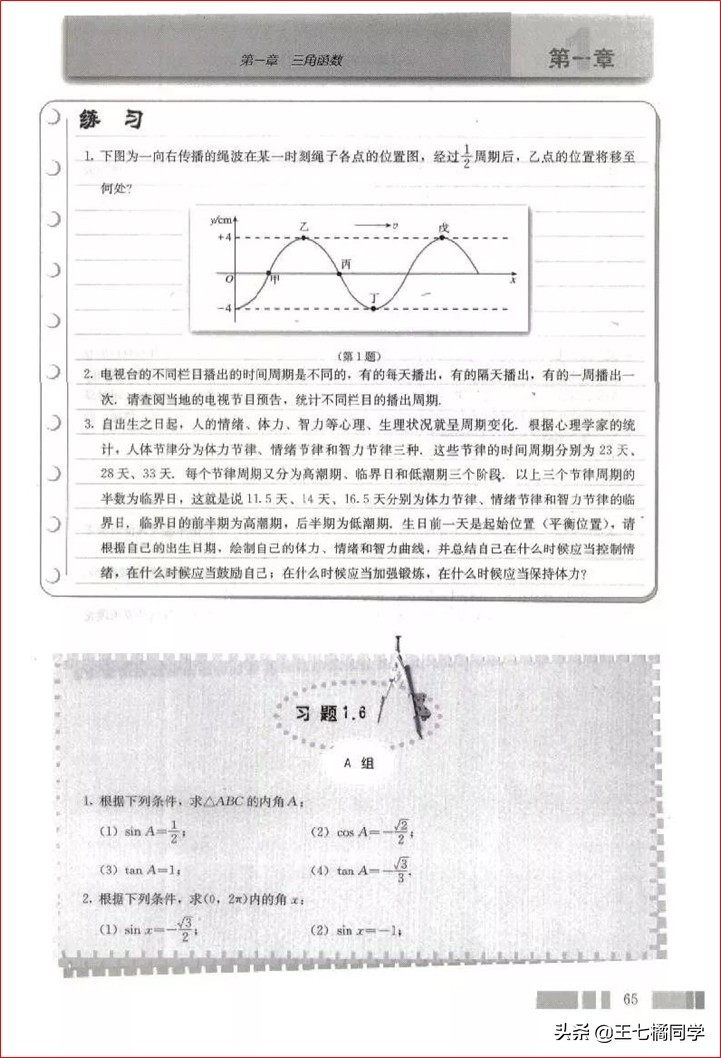 第一章 三角函数
第一章
练 习
1. 下图为一向右传播的绳波在某一时刻绳子各点的位置图，经过1/2周期后，乙点的位置将移至
何处?
y/cm
+4
乙
v
戊
丙
O
甲
x
丁
-4
(第1题)
2. 电视台的不同栏目播出的时间周期是不同的，有的每天播出，有的隔天播出，有的一周播出一
次. 请查阅当地的电视节目预告，统计不同栏目的播出周期.
3. 自出生之日起，人的情绪、体力、智力等心理、生理状况就呈周期变化. 根据心理学家的统
计，人体节律分为体力节律、情绪节律和智力节律三种. 这些节律的时间周期分别为 23 天、
28 天、33 天. 每个节律周期又分为高潮期、临界日和低潮期三个阶段. 以上三个节律周期的
半数为临界日，这就是说 11.5 天、14 天、16.5 天分别为体力节律、情绪节律和智力节律的临
界日. 临界日的前半期为高潮期，后半期为低潮期. 生日前一天是起始位置（平衡位置），请
根据自己的出生日期，绘制自己的体力、情绪和智力曲线，并总结自己在什么时候应当控制情
绪，在什么时候应当鼓励自己；在什么时候应当加强锻炼，在什么时候应当保持体力?
习 题1.6
A 组
1. 根据下列条件，求△ABC的内角A：
(1) sin A=1/2； (2) cos A=-√2/2；
(3) tan A=1； (4) tan A=-√3/3.
2. 根据下列条件，求(0，2π)内的角x：
(1) sin x=-√3/2； (2) sin x=-1；
65
头条 @王七橘同学